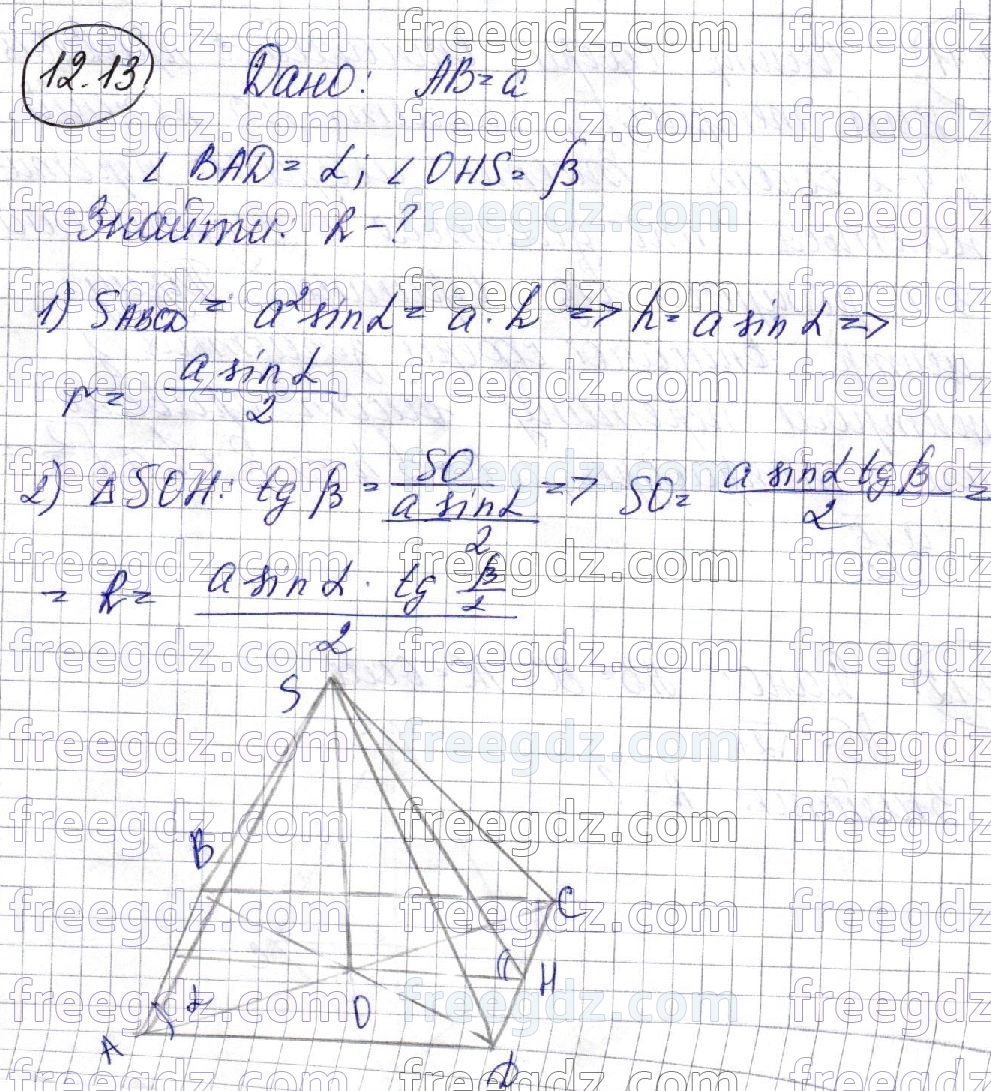 12.13 Дано: AB = a
∠ BAD = α; ∠ OHS = β
Знайти: h - ?
1) S ABCD = a² sin α = a · h => h = a sin α =>
r = a sin α / 2
2) △ SOH: tg β = SO / (a sin α / 2) => SO = a sin α tg β / 2 =
= h = a sin α · tg β/2 / 2
S
B
C
H
α
O
A
D
freegdz.com